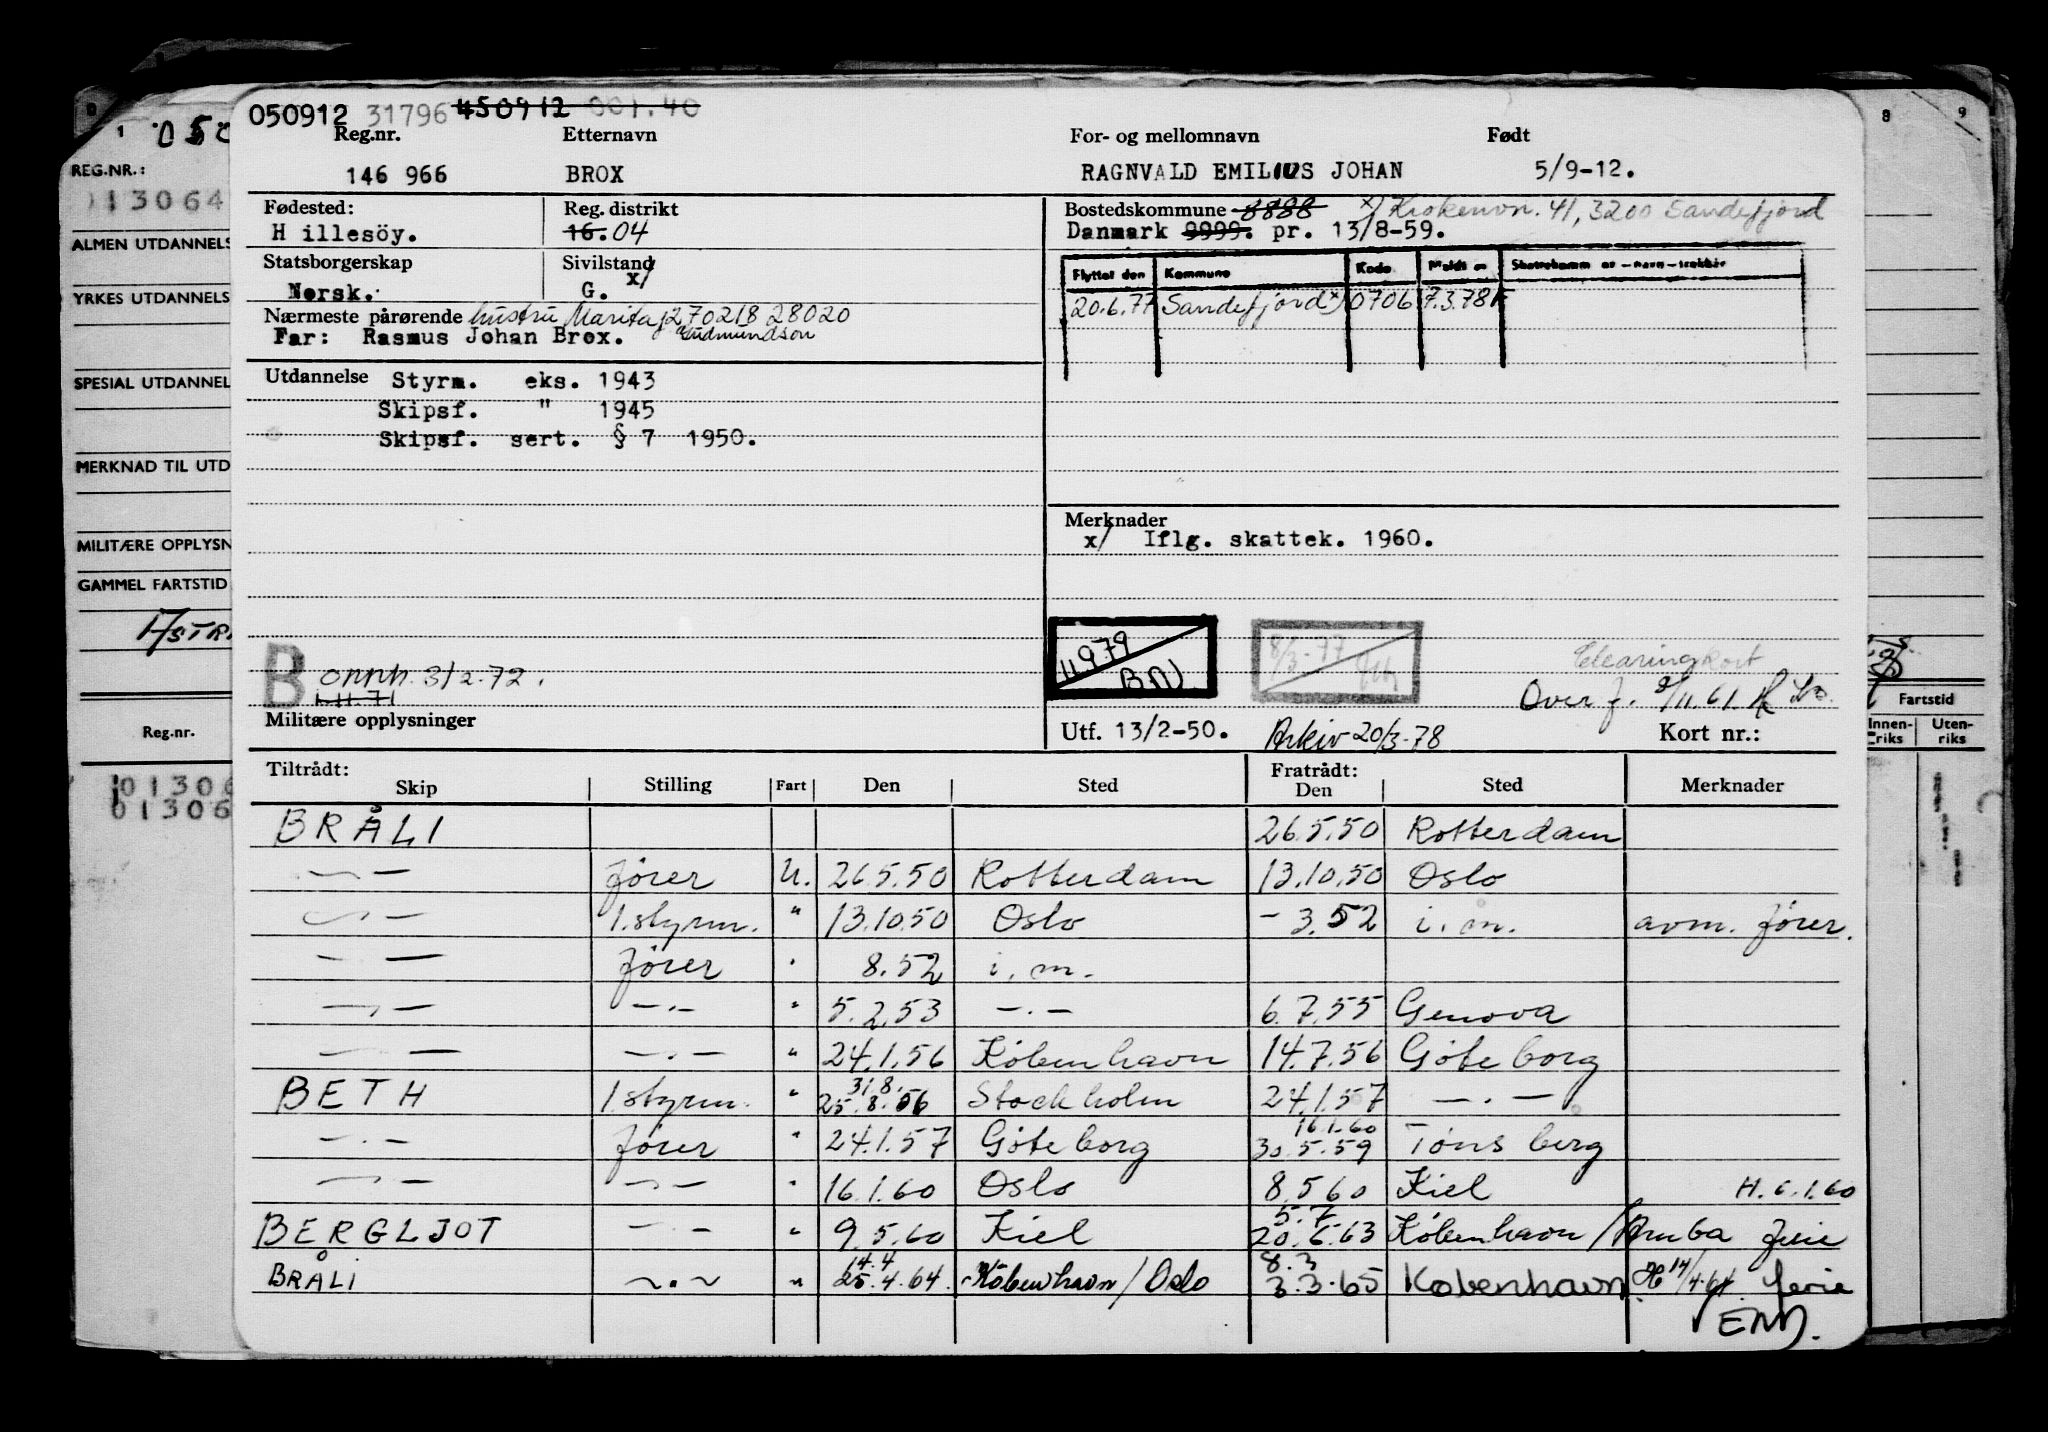 050912 31796 450912 001.40
Reg.nr. Etternavn For- og mellomnavn Født
146 966 BROX RAGNVALD EMILIUS JOHAN 5/9-12.
Fødested: Reg. distrikt Bostedskommune 8888 x) Krokenvn. 41, 3200 Sandefjord
H illesöy. 16. 04 Danmark 9999. pr. 13/8-59.
Statsborgerskap Sivilstand x/
Norsk. G.
Flyttet den Kommune Kode Meldt
20.6.77 Sandefjord x) 0706 7.3.78
Nærmeste pårørende hustru Marita f 270218 28020
Far: Rasmus Johan Brox. Gudmundson
Utdannelse Styrm. eks. 1943
Skipsf. " 1945
Skipsf. sert. § 7 1950.
Merknader
x/ Iflg. skattek. 1960.
11 9 79
BM
8/3-77
Clearing kort
Overf. 9/11.61
B onnh. 3/2-72.
1.11.71
Militære opplysninger Utf. 13/2-50. Arkiv 20/3-78 Kort nr.:
Tiltrådt: Fratrådt:
Skip Stilling Fart Den Sted Den Sted Merknader
BRÅLI 26.5.50 Rotterdam
— " — fører U. 26.5.50 Rotterdam 13.10.50 Oslo
— " — 1.styrm. " 13.10.50 Oslo - 3.52 i.m. avm. fører.
— " — fører " 8.52 i.m.
— " — — " — " 5.2.53 — " — 6.7.55 Genova
— " — — " — " 24.1.56 København 14.7.56 Göteborg
31.8.
BETH 1.styrm. " 25.8.56 Stockholm 24.1.57 — " —
16.1.60
— " — fører " 24.1.57 Göteborg 30.5.59 Tønsberg
— " — — " — " 16.1.60 Oslo 8.5 60 Kiel H. 6.1.60
5.7
BERGLJOT — " — " 9.5.60 Kiel 20.6.63 København / Aruba ferie
14.4 8.3
BRÅLI — " — " 25.4.64. København / Oslo 3.3.65 København H 14/4.64. ferie
EM.
1 050
REG.NR.:
013064
ALMEN UTDANNELS
YRKES UTDANNELS
SPESIAL UTDANNEL
MERKNAD TIL UTD
MILITÆRE OPPLYSN
GAMMEL FARTSTID
Reg.nr.
01306
01306
8 9
Fartstid
Innen-riks Uten-riks